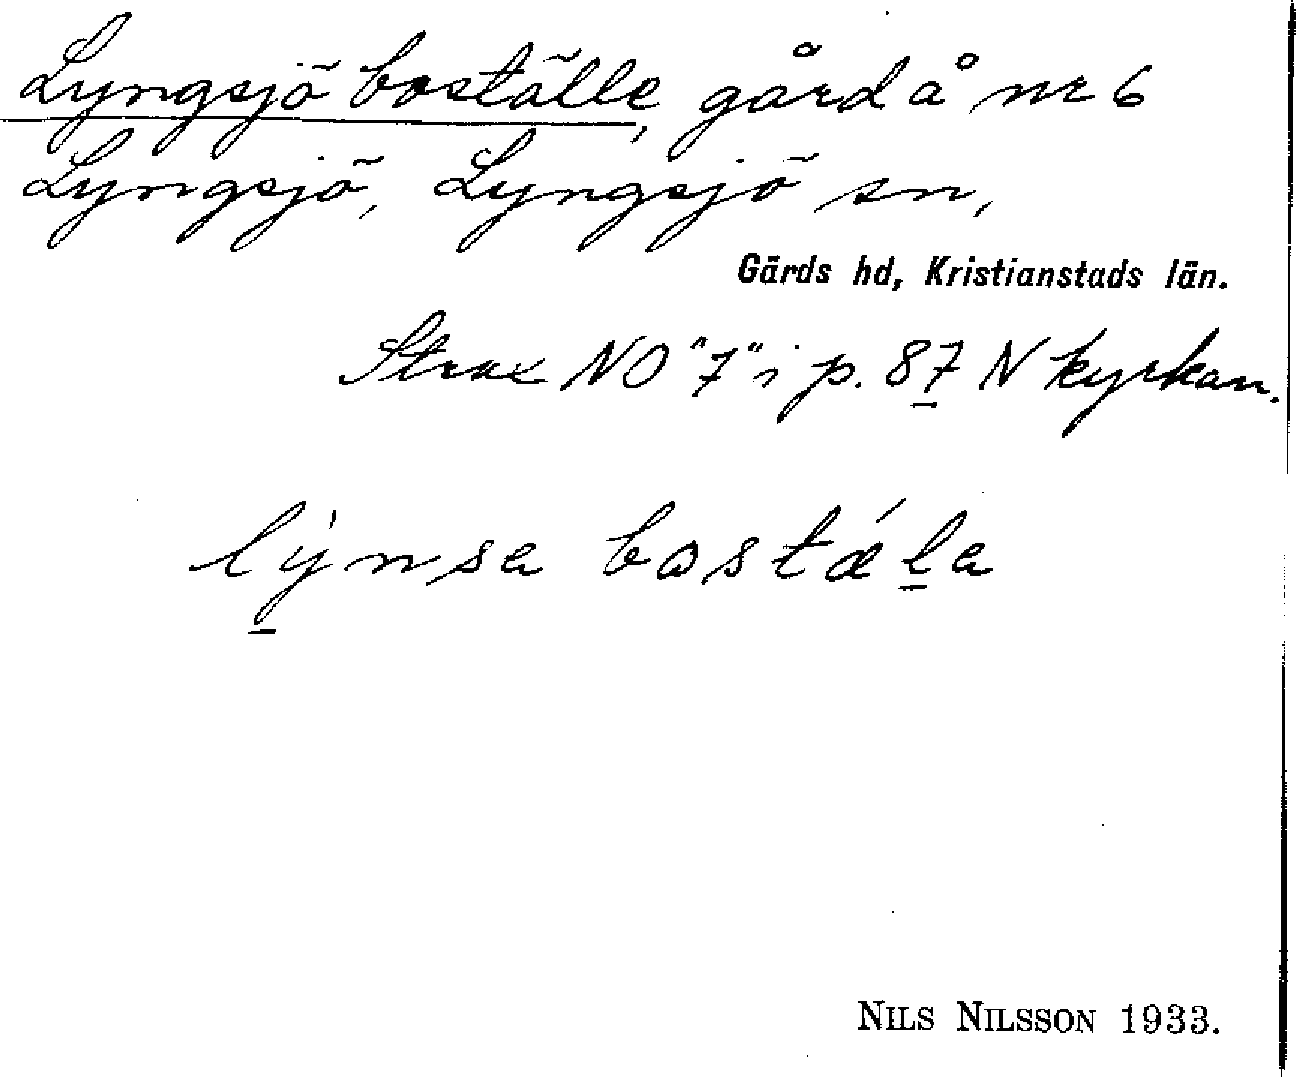 Lyngsjö boställe, gård å nr 6
Lyngsjö, Lyngsjö sn,
Gärds hd, Kristianstads län.
Strax NO "7" i p. 87 N kyrkan.
lýnsa bostǽla
NILS NILSSON 1933.